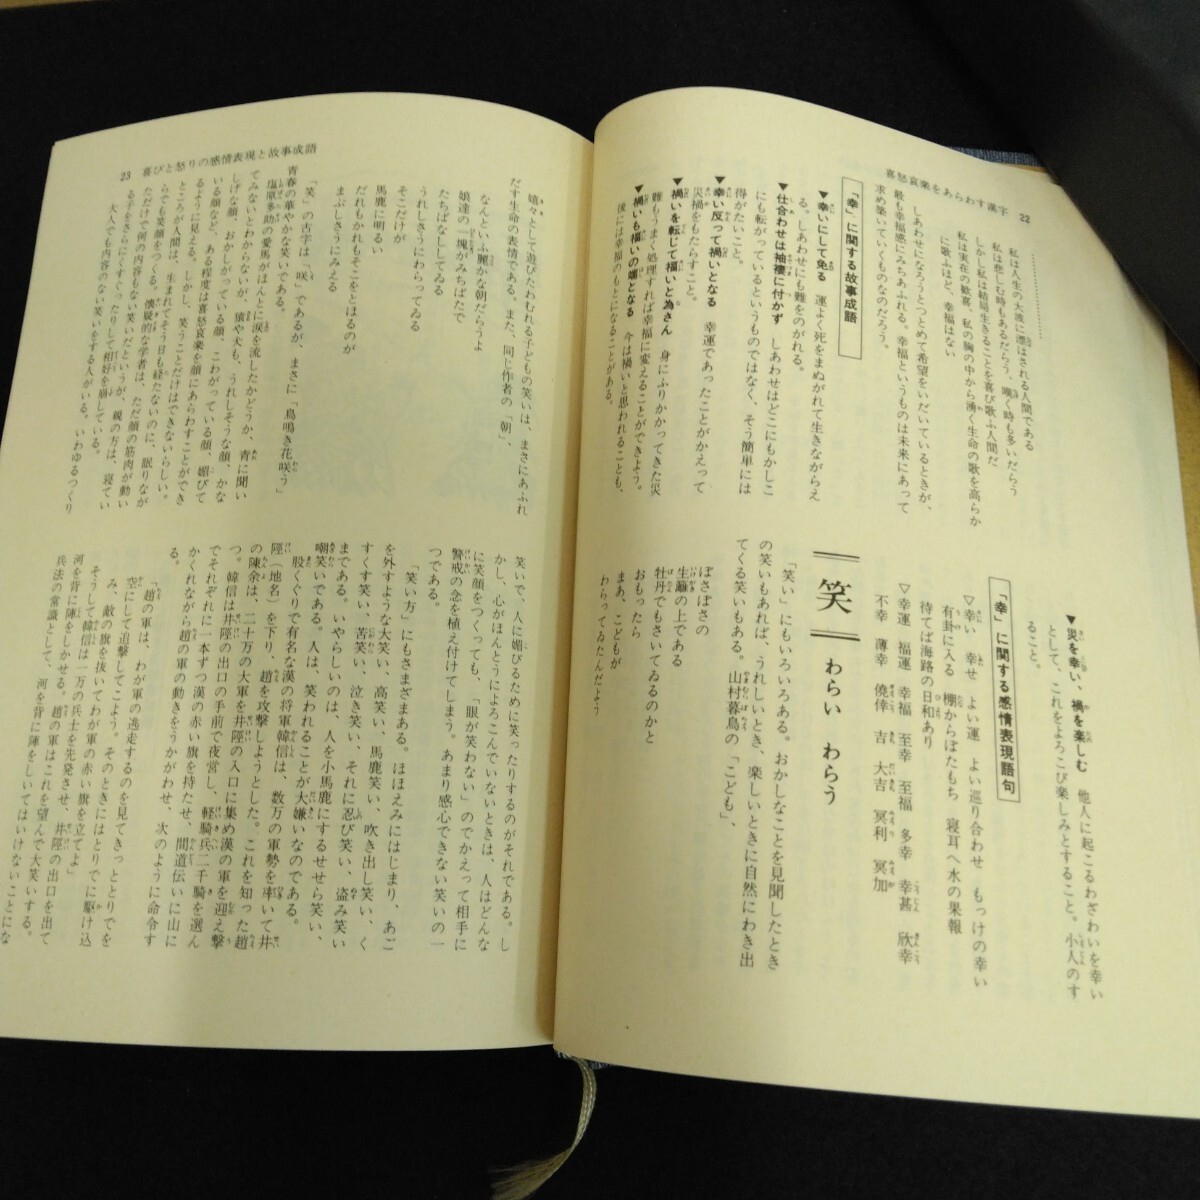 喜怒哀楽をあらわす漢字 22
私は人生の大波に漂はされる人間である
私は悲しむ時もあるだらう、嘆く時も多いだらう
しかし私は結局生きることを喜び歌ふ人間だ
私は実在の歓喜、私の胸の中から湧く生命の歌を高らか
に歌ふほど、幸福はない
しあわせになろうとつとめて希望をいだいているときが、
最も幸福感にみちあふれる。幸福というものは未来にあって
求め築いていくものなのだろう。
「幸」に関する故事成語
▼幸いにして免る 運よく死をまぬがれて生きながらえ
る。しあわせにも難をのがれる。
▼仕合わせは袖褄に付かず しあわせはどこにもかしこ
にも転がっているというものではなく、そう簡単には
得がたいこと。
▼幸い反って禍いとなる 幸運であったことがかえって
災禍をもたらすこと。
▼禍いを転じて福いと為さん 身にふりかかってきた災
難もうまく処理すれば幸福に変えることができよう。
▼禍いも福いの媒となる 今は禍いと思われることも、
後には幸福のもとになることがある。
▼災を幸い、禍を楽しむ 他人に起こるわざわいを幸い
として、これをよろこび楽しみとすること。小人のす
ること。
「幸」に関する感情表現語句
▽幸い 幸せ よい運 よい巡り合わせ もっけの幸い
有卦に入る 棚からぼたもち 寝耳へ水の果報
待てば海路の日和あり
▽幸運 福運 幸福 至幸 至福 多幸 幸甚 欣幸
不幸 薄幸 僥倖 吉 大吉 冥利 冥加
笑 わらい わらう
「笑い」にもいろいろある。おかしなことを見聞したとき
の笑いもあれば、うれしいとき、楽しいときに自然にわき出
てくる笑いもある。山村暮鳥の「こども」、
ぼさぼさの
生籬の上である
牡丹でもさいてゐるのかと
おもったら
まあ、こどもが
わらってゐたんだよう
23 喜びと怒りの感情表現と故事成語
嬉々として遊びたわむれる子どもの笑いは、まさにあふれ
だす生命の表情である。また、同じ作者の「朝」、
なんといふ麗かな朝だらうよ
娘達の一塊がみちばたで
たちばなししてゐる
うれしさうにわらってゐる
そこだけが
馬鹿に明るい
だれもかれもそこをとほるのが
まぶしさうにみえる
「笑」の古字は「咲」であるが、まさに「鳥鳴き花咲う」
青春の華やかな笑いである。
塩原多助の愛馬がほんとに涙を流したかどうか、青に聞い
てみないとわからないが、猿や犬も、うれしそうな顔、かな
しげな顔、おかしがっている顔、こわがっている顔、媚びて
いる顔など、ある程度は喜怒哀楽を顔にあらわすことができ
るように見える。しかし、笑うことだけはできないらしい。
ところが人間は、生まれてそう日も経たないのに、眠りなが
らでも笑顔をつくる。懐疑的な学者は、ただ顔の筋肉が動い
ただけで何の内容もない笑いだというが、親の方は、寝てい
る子をさらにくすぐったりして相好を崩している。
大人でも内容のない笑いをする人がいる。いわゆるつくり
笑いで、人に媚びるために笑ったりするのがそれである。し
かし、心がほんとうによろこんでいないときは、人はどんな
に笑顔をつくっても、「眼が笑わない」のでかえって相手に
警戒の念を植え付けてしまう。あまり感心できない笑いの一
つである。
「笑い方」にもさまざまある。ほほえみにはじまり、あご
を外すような大笑い、高笑い、馬鹿笑い、吹き出し笑い、く
すくす笑い、苦笑い、泣き笑い、それに忍び笑い、盗み笑い
まである。いやらしいのは、人を小馬鹿にするせせら笑い、
嘲笑いである。人は、笑われることが大嫌いなのである。
股くぐりで有名な漢の将軍韓信は、数万の軍勢を率いて井
陘（地名）を下り、趙を攻撃しようとした。これを知った趙
の陳余は、二十万の大軍を井陘の入口に集め漢の軍を迎え撃
つ。韓信は井陘の出口の手前で夜営し、軽騎兵二千騎を選ん
でそれぞれに一本ずつ漢の赤い旗を持たせ、間道伝いに山に
かくれながら趙の軍の動きをうかがわせ、次のように命令す
る。
「趙の軍は、わが軍の逃走するのを見てきっととりでを
空にして追撃してこよう。そのときにはとりでに駆け込
み、敵の旗を抜いてわが軍の赤い旗を立てよ」
そうして韓信は一万の兵士を先発させ、井陘の出口を出て
河を背に陣をしかせる。趙の軍はこれを望んで大笑いする。
兵法の常識として、河を背に陣をしいてはいけないことにな